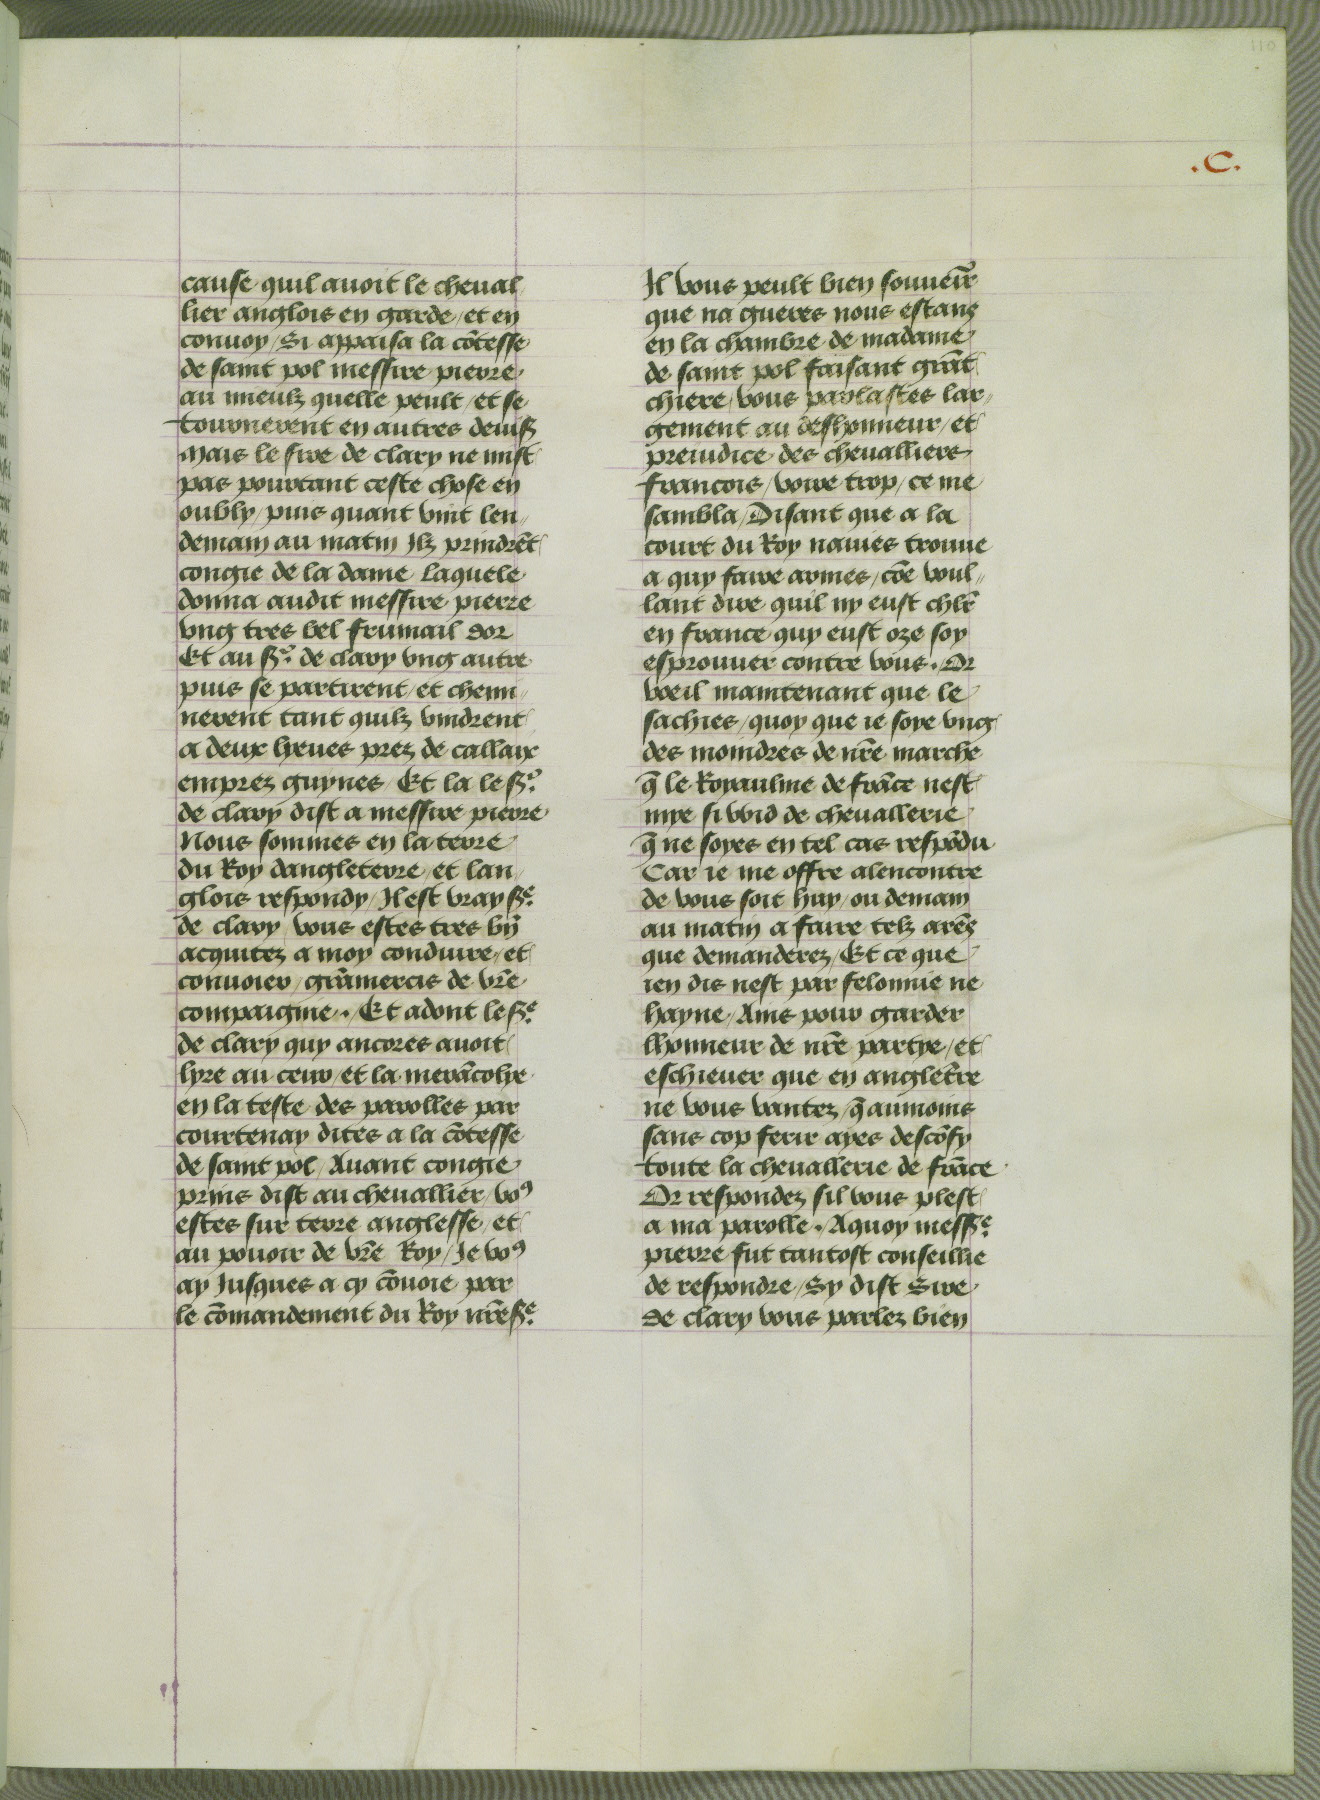 110
.C.
cause quil auoit le cheual
lier anglois en garde / et en
conuoy / Si appaisa la cõtesse
de saint pol messire pierre
au mieulz quelle peult / et se
tournerent en autres deuiß
Mais le sire de clary ne mist
pas pourtant ceste chose en
oubly / puis quant vint len„
demain au matin Jlz prindrẽt
congie de la dame Laquele
donna audit messire pierre
vng tres bel frumail dor
Et au ßʳ. de clary vng autre
puis se partirent / et chemi„
nerent tant quilz vindrent
a deux lieues prez de callaix
emprez guynes / Et la le ßʳ.
de clary dist a messire pierre
Nous sommes en la terre
du Roy dangleterre / et lan„
glois respondy / Il est vray ßᵉ.
de clary vous estes tres bñ
acquitez a moy conduire / et
conuoier / grãmercis de vr̃e
compaignie . / Et adont le ßᵉ.
de clary quy ancores auoit
lyre au ceur / et la merãcolye
en la teste des parolles par
courtenay dites a la cõtesse
de saint pol / Auant congie
prins dist au cheuallier / voꝰ
estes sur terre anglesse / et
au pouoir de vr̃e Roy / Je voꝰ
ay Jusques a cy cõuoie par
le cõmandement du Roy nr̃e ßᵉ.
Il vous peult bien souueir̃
que na gueres nous estans
en la chambre de madame
de saint pol faisant grãt
chiere / vous parlastes lar„
gement au deshonneur / et
preiudice des cheualliers
francois / voire trop / ce me
sambla / Disant que a la
court du Roy nauies trouue
a quy faire armes / cõe voul„
lant dire quil ny eust chlr̃
en france quy eust oze soy
esprouuer contre vous . Or
voeil maintenant que le
sachies / quoy que ie soye vng
des moindres de nr̃e marche
q̃ le Royaulme de frãce nest
mye si wid de cheuallerie
q̃ ne soyes en tel cas respõdu
Car ie me offre alencontre
de vous soit huy / ou demain
au matin a faire telz arm̃s
que demanderez / Et ce que
ien dis nest par felonnie ne
hayne / Ains pour garder
lhonneur de nr̃e partye / et
eschieuer que en anglet̃re
ne vous vantez / q̃ aumoins
sans cop ferir ayes descõfy
toute la cheuallerie de frãce
Or respondez sil vous plest
a ma parolle . Aquoy messᵉ.
pierre fut tantost conseillie
de respondre / Sy dist Sire
de clary vous parlez bien